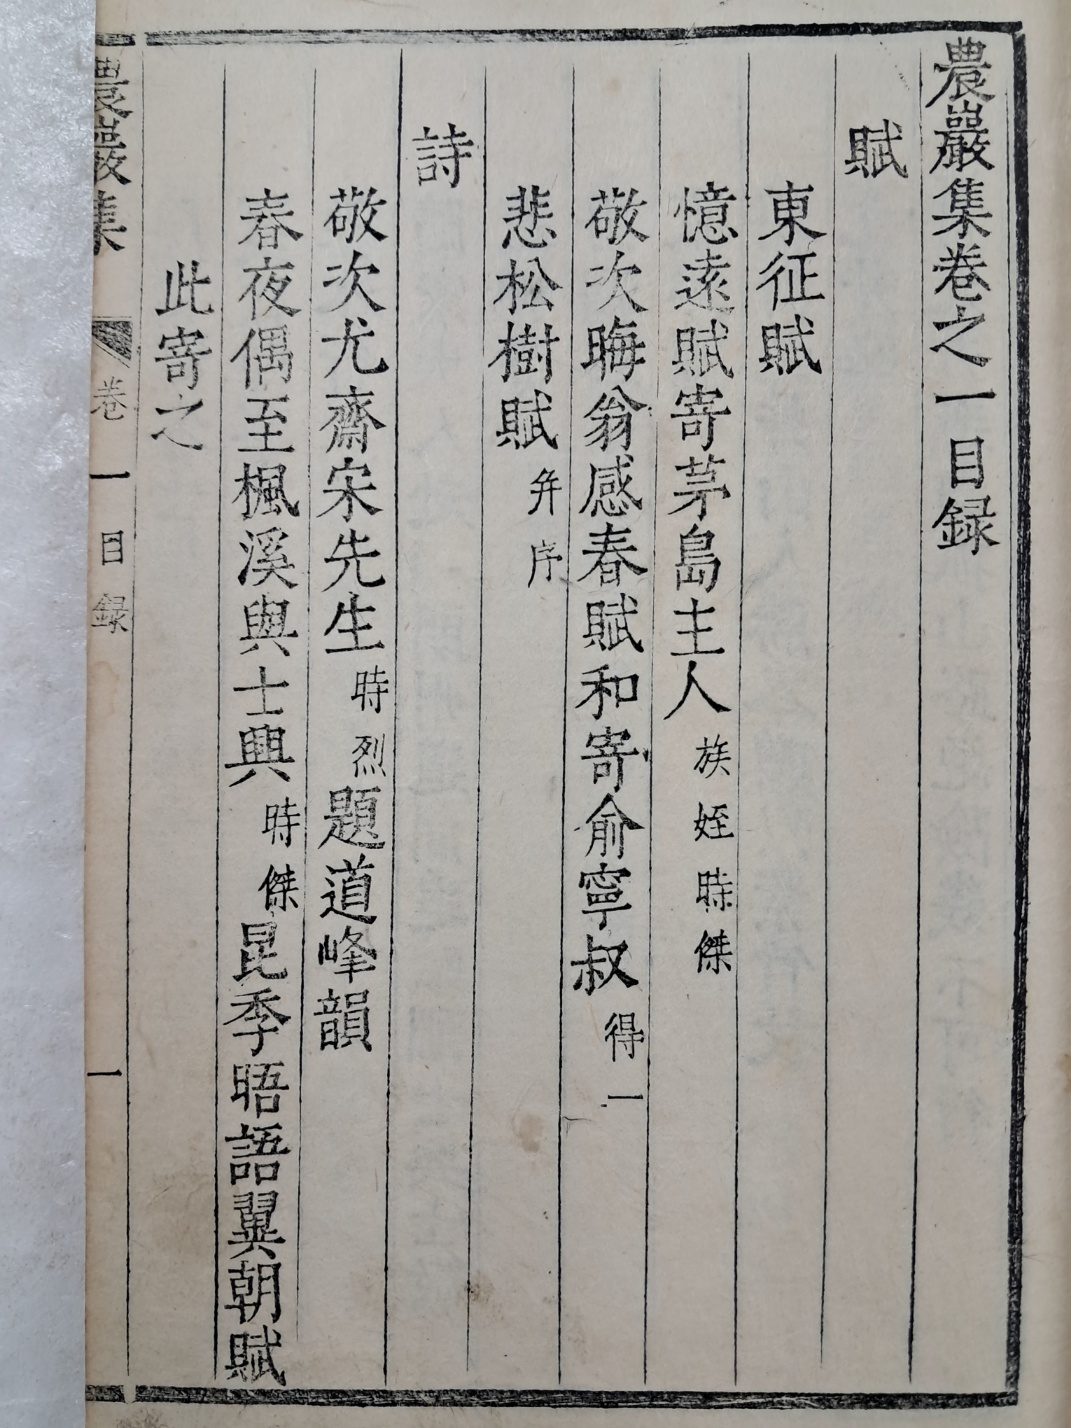 農巖集卷之一目録
賦
東征賦
憶遠賦寄茅島主人族姪時傑
敬次晦翁感春賦和寄俞寧叔得一
悲松樹賦并序
詩
敬次尤齋宋先生時烈題道峰韻
春夜偶至楓溪與士興時傑昆季晤語翼朝賦
此寄之
農巖集 卷一目録 一